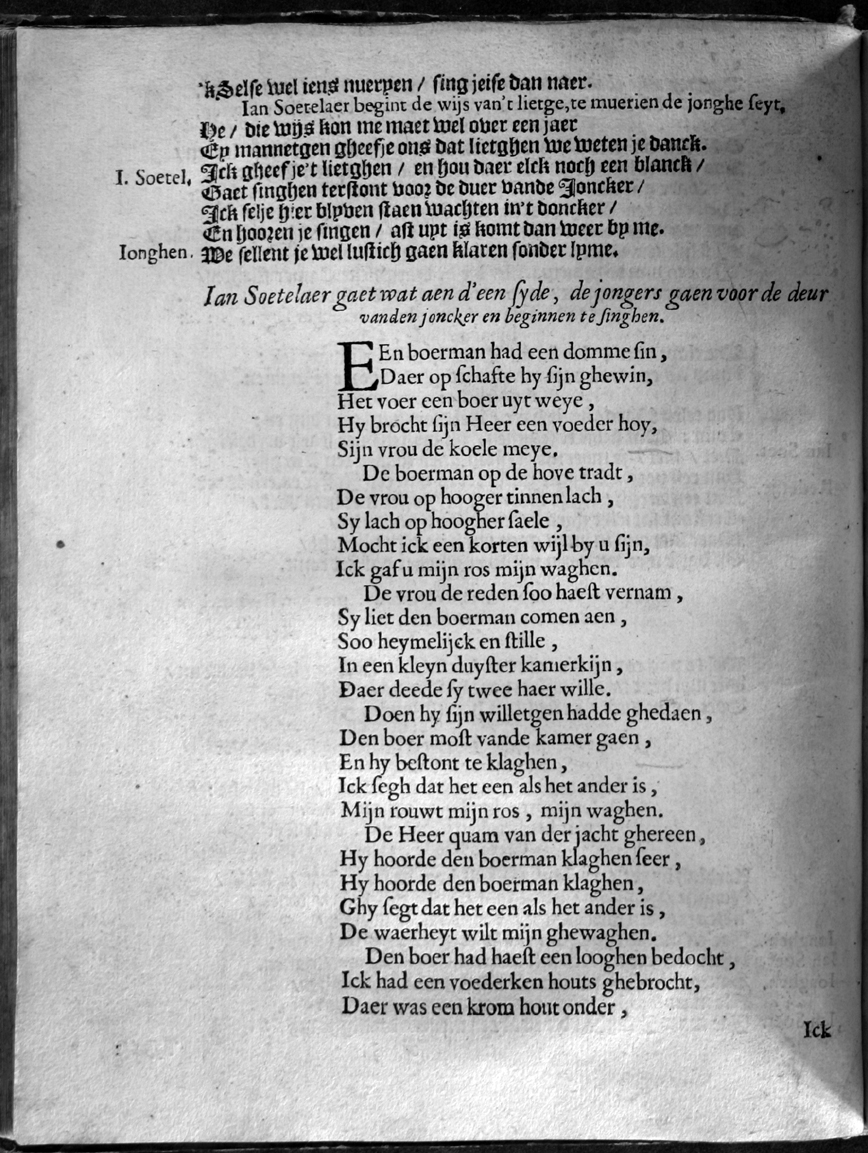 'kSelse wel iens nueryen / sing jeise dan naer.
Ian Soetelaer begint de wijs van't lietge, te muerien de jonghe ſeyt,
He / die wijs kon me maet wel over een jaer
Ey mannetgen gheefje ons dat lietghen we weten je danck.
I. Soetel. Ick gheef je't lietghen / en hou daer elck noch een blanck /
Gaet singhen terstont voor de duer vande Joncker /
Ick selje hier blyven staen wachten in't doncker /
En hooren je singen / ast uyt is komt dan weer by me.
Ionghen. We sellent je wel lustich gaen klaren sonder lyme.
Ian Soetelaer gaet wat aen d'een ſyde, de jongers gaen voor de deur
vanden joncker en beginnen te ſinghen.
EEn boerman had een domme ſin,
Daer op ſchafte hy ſijn ghewin,
Het voer een boer uyt weye,
Hy brocht ſijn Heer een voeder hoy,
Sijn vrou de koele meye.
De boerman op de hove tradt,
De vrou op hooger tinnen lach,
Sy lach op hoogher ſaele,
Mocht ick een korten wijl by u ſijn,
Ick gaf u mijn ros mijn waghen.
De vrou de reden ſoo haeſt vernam,
Sy liet den boerman comen aen,
Soo heymelijck en ſtille,
In een kleyn duyſter kamerkijn,
Daer deede ſy twee haer wille.
Doen hy ſijn willetgen hadde ghedaen,
Den boer moſt vande kamer gaen,
En hy beſtont te klaghen,
Ick ſegh dat het een als het ander is,
Mijn rouwt mijn ros, mijn waghen.
De Heer quam van der jacht ghereen,
Hy hoorde den boerman klaghen ſeer,
Hy hoorde den boerman klaghen,
Ghy ſegt dat het een als het ander is,
De waerheyt wilt mijn ghewaghen.
Den boer had haeſt een looghen bedocht,
Ick had een voederken houts ghebrocht,
Daer was een krom hout onder,
Ick